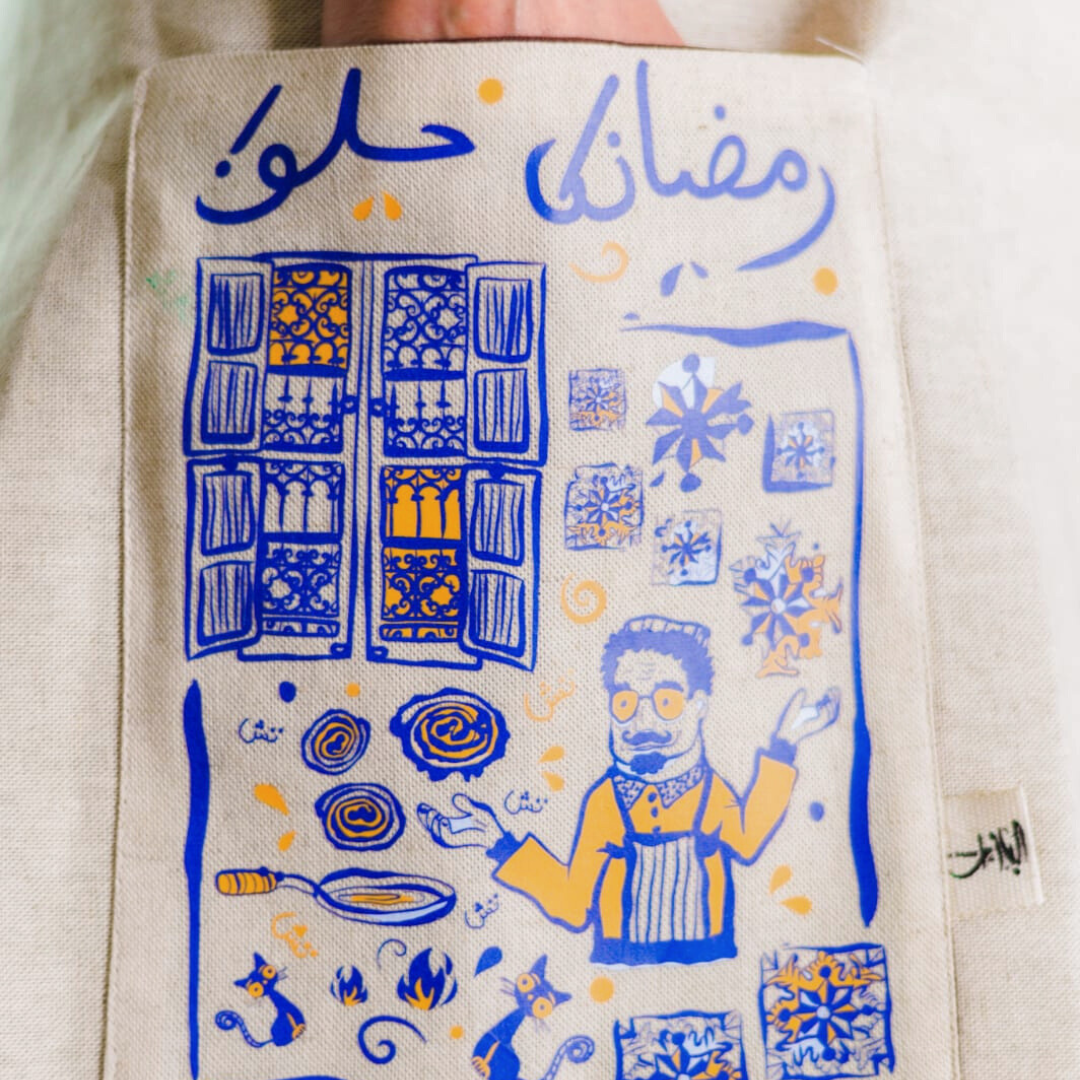 رمضانك حلو!
تش
تش
تش
تش
تش